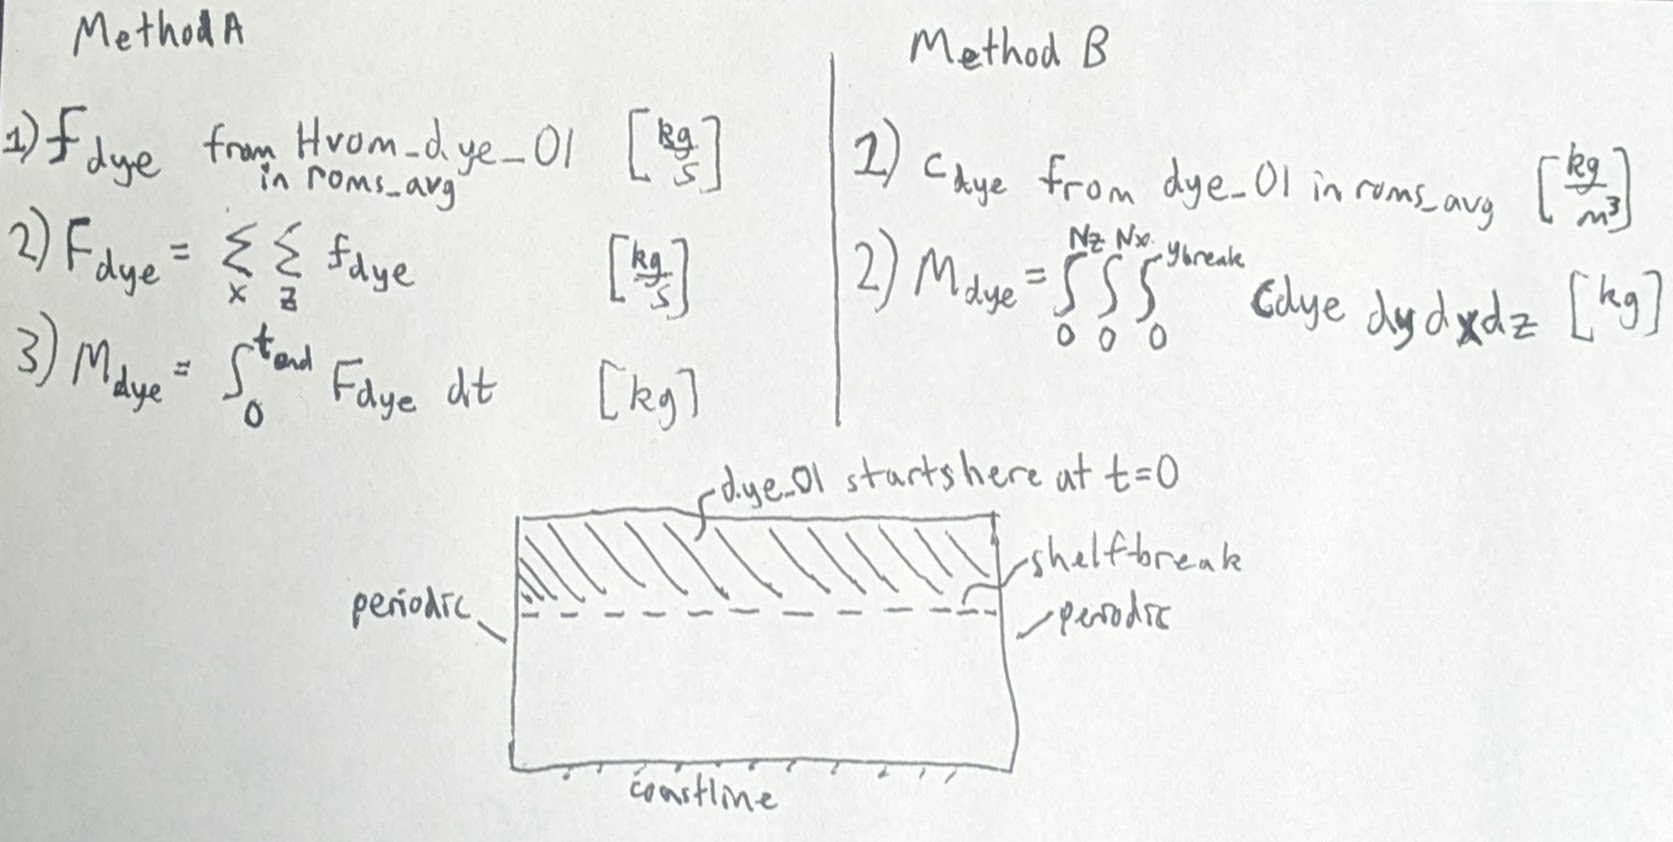 Method A
1) f_dye from Hvom_dye_01 [kg/s]
in roms_avg
2) F_dye = Σ_x Σ_z f_dye [kg/s]
3) M_dye = ∫_0^tend F_dye dt [kg]
Method B
1) c_dye from dye_01 in roms_avg [kg/m³]
2) M_dye = ∫_0^Nz ∫_0^Nx ∫_0^ybreak cdye dy dx dz [kg]
dye_01 starts here at t=0
shelfbreak
periodic
periodic
coastline